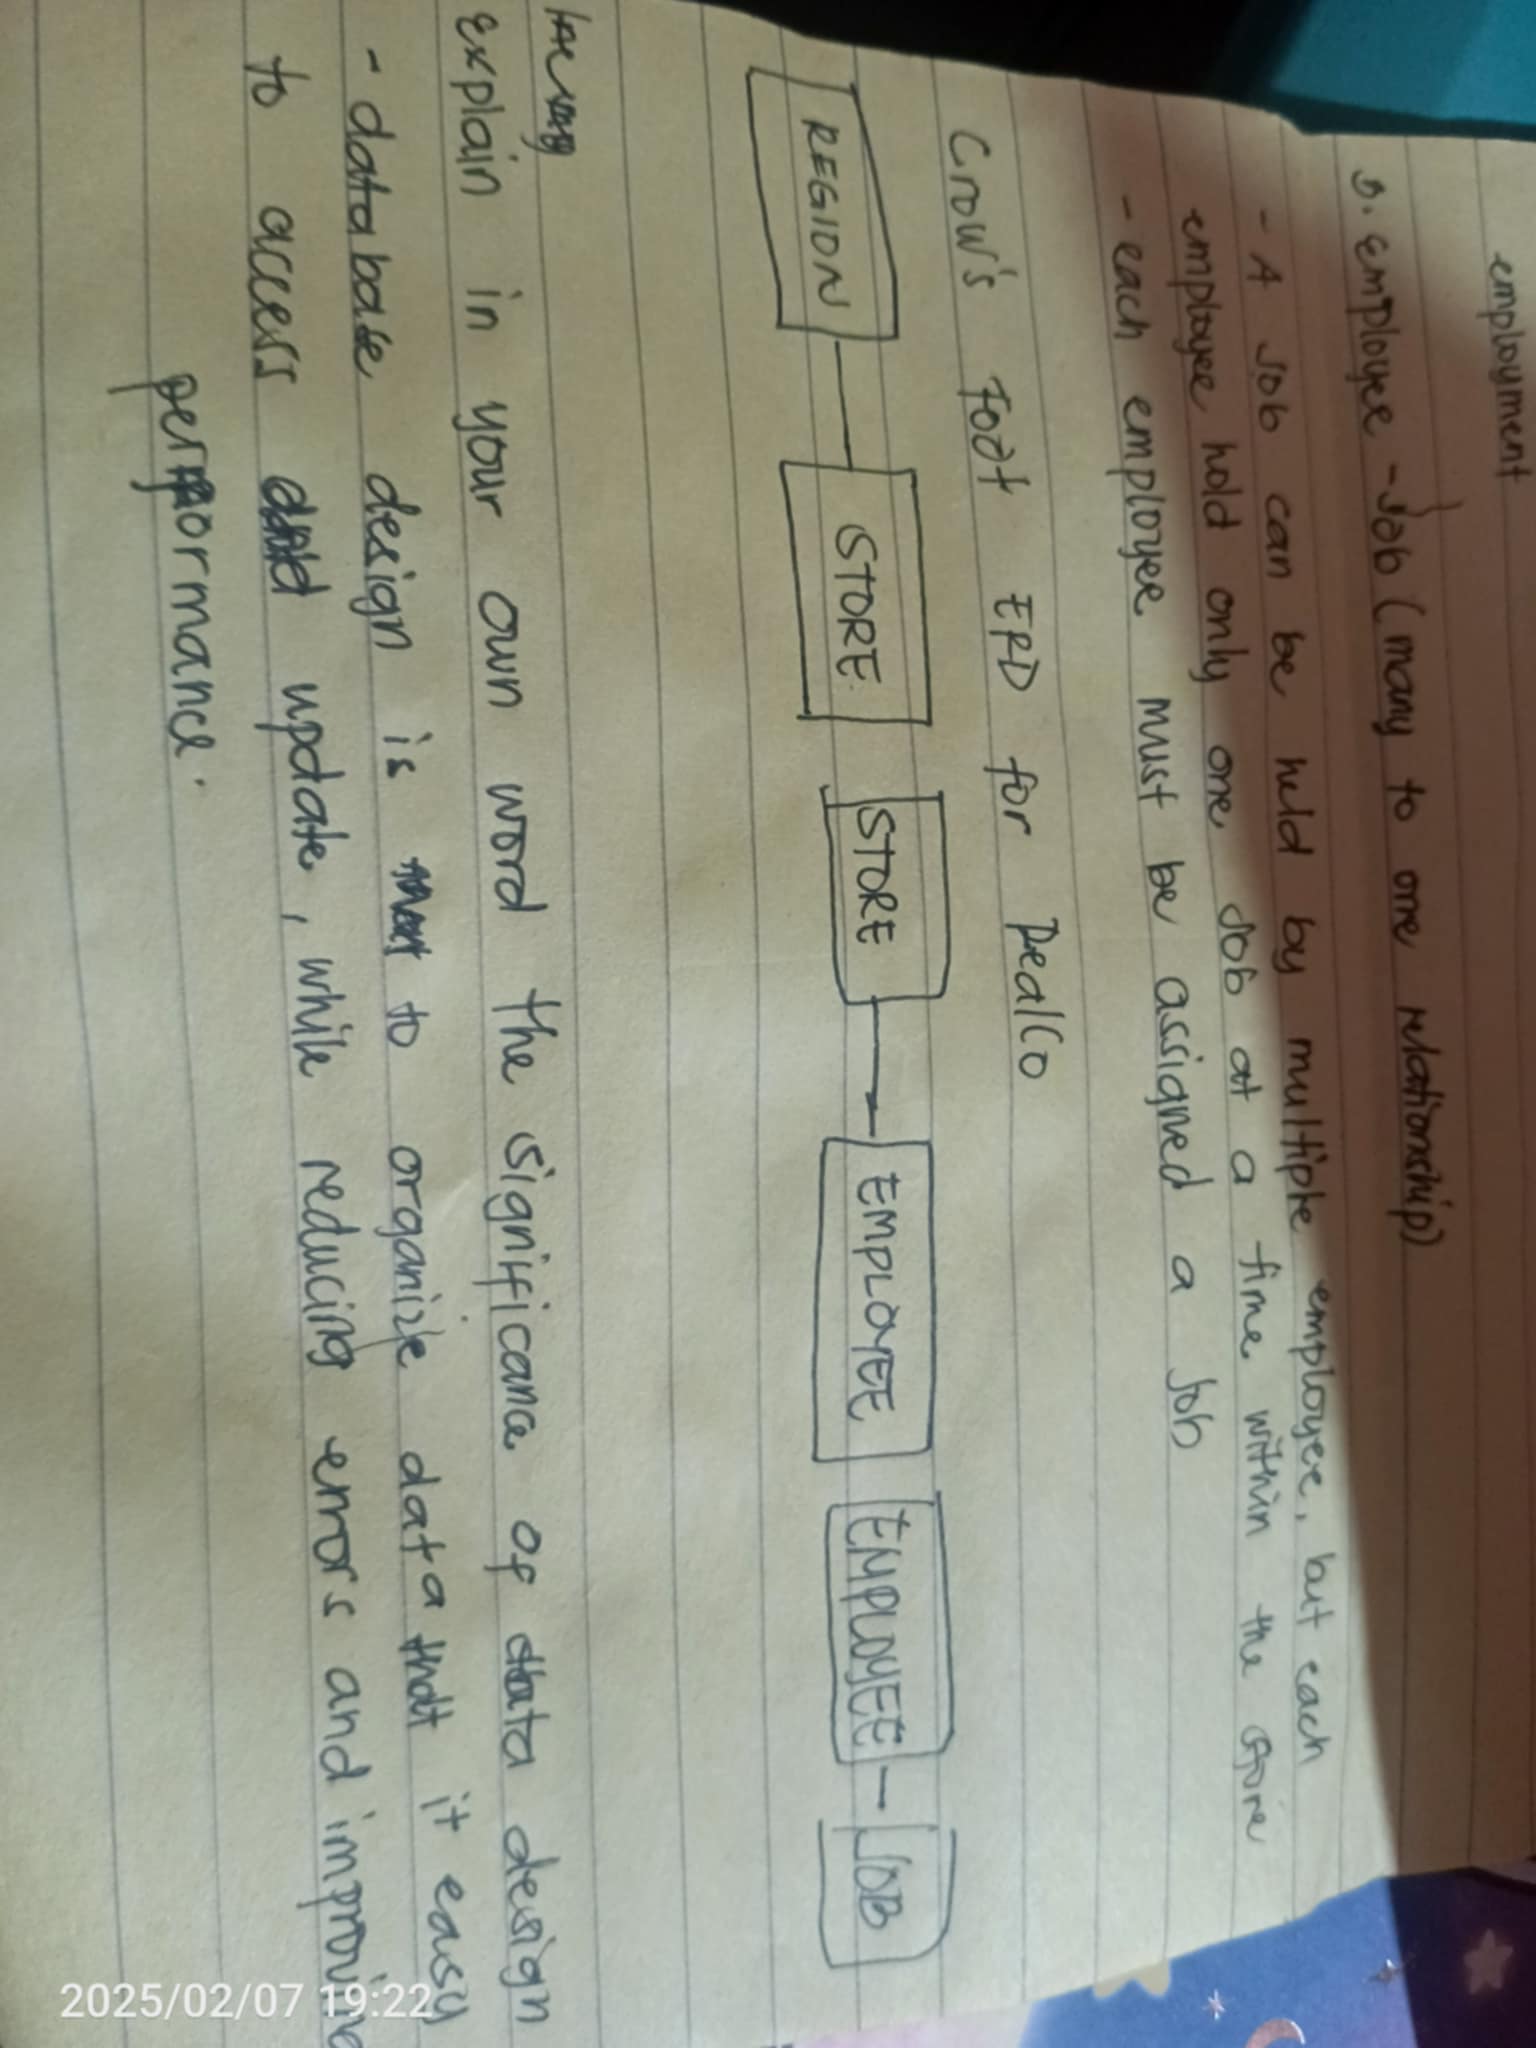 employment
D. Employee - Job (many to one relationship)
- A Job can be held by multiple employee, but each
employee hold only one Job at a time within the store
- each employee must be assigned a Job
Crow's Foot ERD for DealCo
REGION STORE STORE EMPLOYEE EMPLOYEE JOB
explain in your own word the significance of data design
- database design is to organize data that it easy
to access and update, while reducing errors and improving
performance.
2025/02/07 19:22